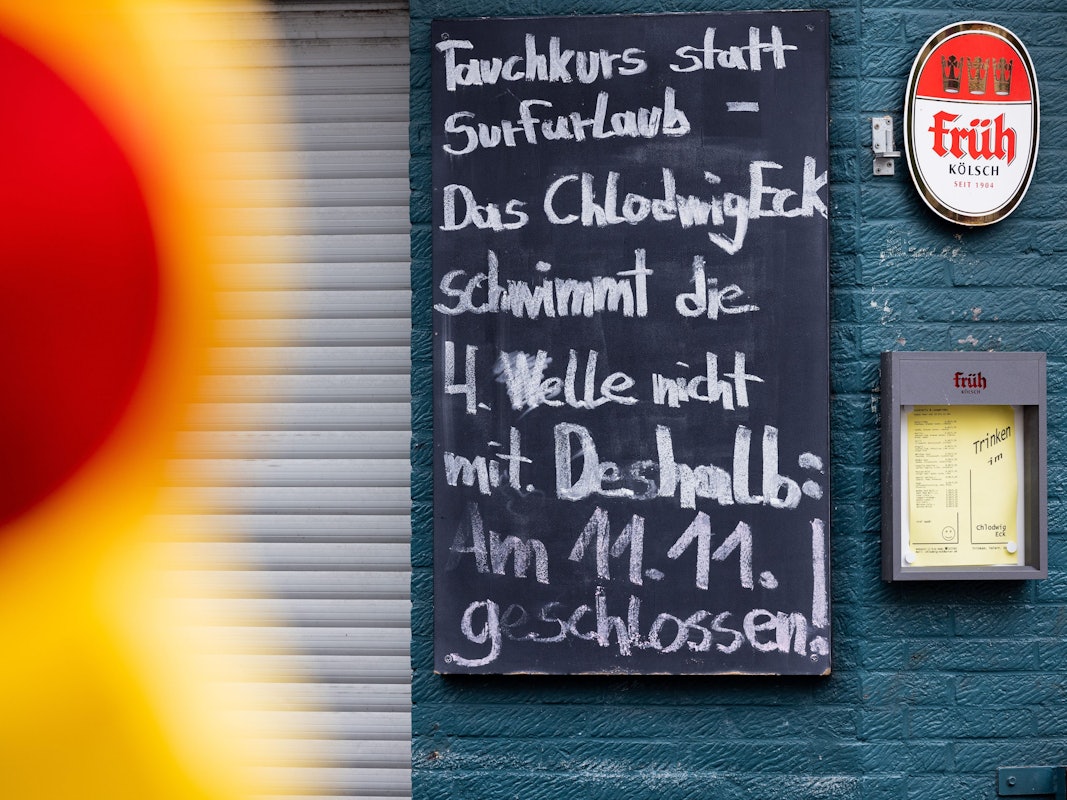 Tauchkurs statt
Surfurlaub -
Das ChlodwigEck
schwimmt die
4. Welle nicht
mit. Deshalb:
Am 11.11.
geschlossen!
früh
KÖLSCH
SEIT 1904
früh
KÖLSCH
Trinken
im
Chlodwig
Eck